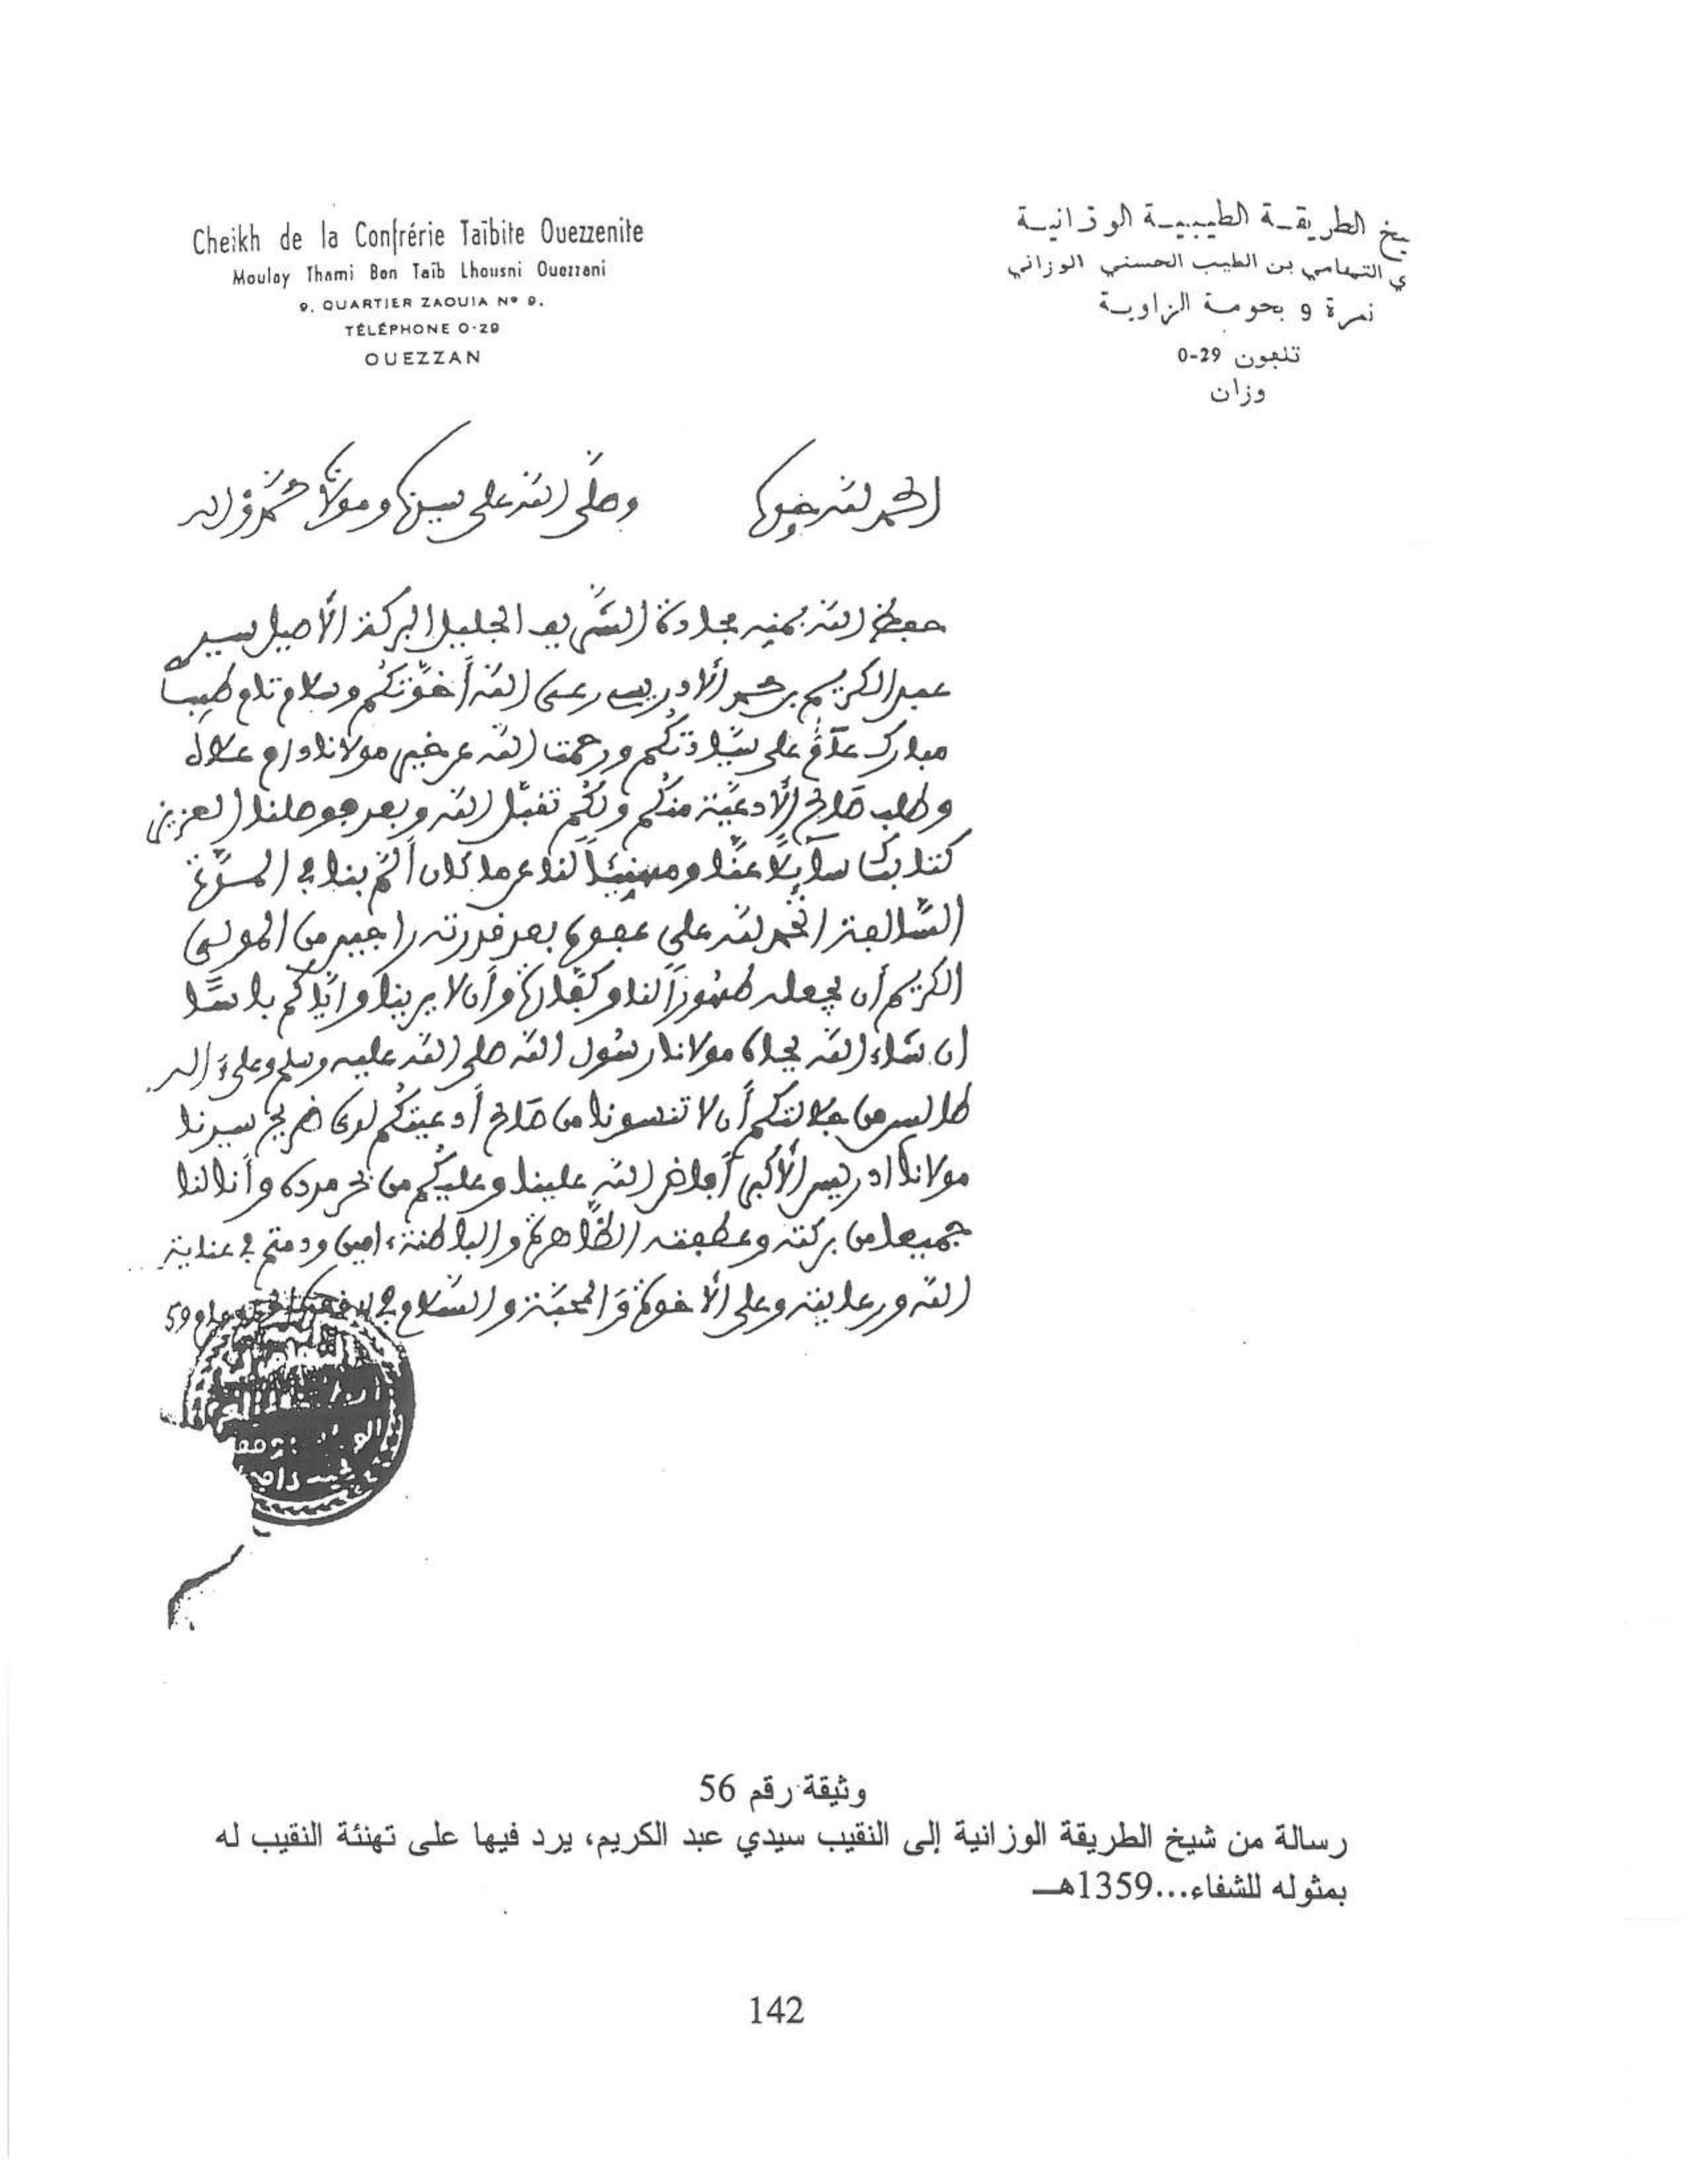 Cheikh de la Confrérie Taïbite Ouezzenite
Moulay Thami Ben Taïb Lhousni Ouezzani
9, QUARTIER ZAOUIA Nº 9.
TÉLÉPHONE 0-29
OUEZZAN
يخ الطريقة الطيبية الوزانية
ي التهامي بن الطيب الحسني الوزاني
نمرة 9 بحومة الزاوية
تلفون 29-0
وزان
الحمد لله وصلى الله على سيدنا ومولانا محمد وءاله
حفظ الله بمنه مجادة الشريف الجليل البركة الأصيل سيدي
عبد الكريم بن محمد الادريسي رعى الله أخوتكم وسلام تام طيب
مبارك عام على سيادتكم ورحمت الله عن خير مولانا دام علاه
وطلب صالح الأدعية منكم ولكم تقبل الله وبعد فوصلنا العزيز
كتابك سآئلا عنا ومهنئا لنا عن ما كان ألم بنا في المدة
السالفة الحمد لله على عفوه بعد قدرته راجيين من المولى
الكريم أن يجعله طهورا لنا وكفارة وأن لا يرينا واياكم باسا
ان شاء الله بجاه مولانا رسول الله صلى الله عليه وسلم وعلى ءاله
طالبين من جلالتكم أن لا تنسونا من صالح أدعيتكم لدى ضريح سيدنا
مولانا ادريس الأكبر أفاض الله علينا وعليكم من مدده وأنالنا
جميعا من بركته وعطفته الظاهرة والباطنة ءامين ودمتم في عناية
الله ورعايته وعلى الأخوة والمحبة والسلام في عام 59
وثيقة رقم 56
رسالة من شيخ الطريقة الوزانية إلى النقيب سيدي عبد الكريم، يرد فيها على تهنئة النقيب له
بمثوله للشفاء...1359هـ
142